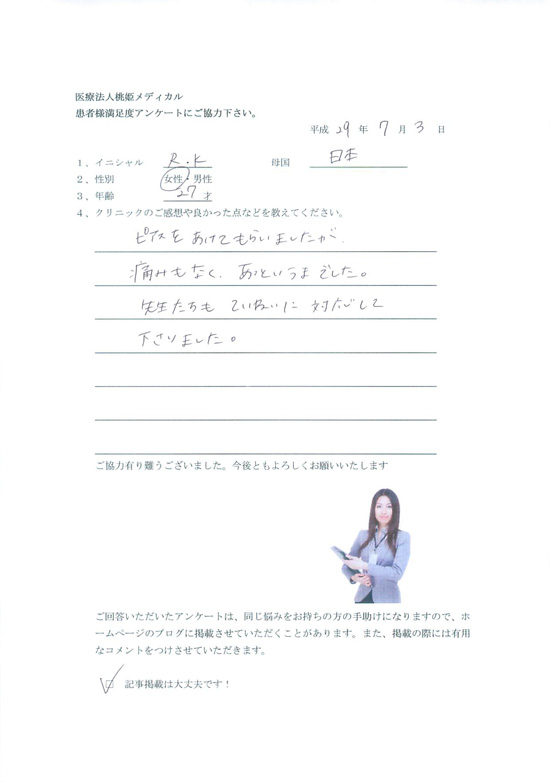 医療法人桃姫メディカル
患者様満足度アンケートにご協力下さい。
平成 29 年 7 月 3 日
1、イニシャル R.K 母国 日本
2、性別 女性・男性
3、年齢 27才
4、クリニックのご感想や良かった点などを教えてください。
ピアスをあけてもらいましたが、
痛みもなく、あっというまでした。
先生たちも ていねいに 対応して
下さりました。
ご協力有り難うございました。今後ともよろしくお願いいたします
ご回答いただいたアンケートは、同じ悩みをお持ちの方の手助けになりますので、ホ
ームページのブログに掲載させていただくことがあります。また、掲載の際には有用
なコメントをつけさせていただきます。
記事掲載は大丈夫です！